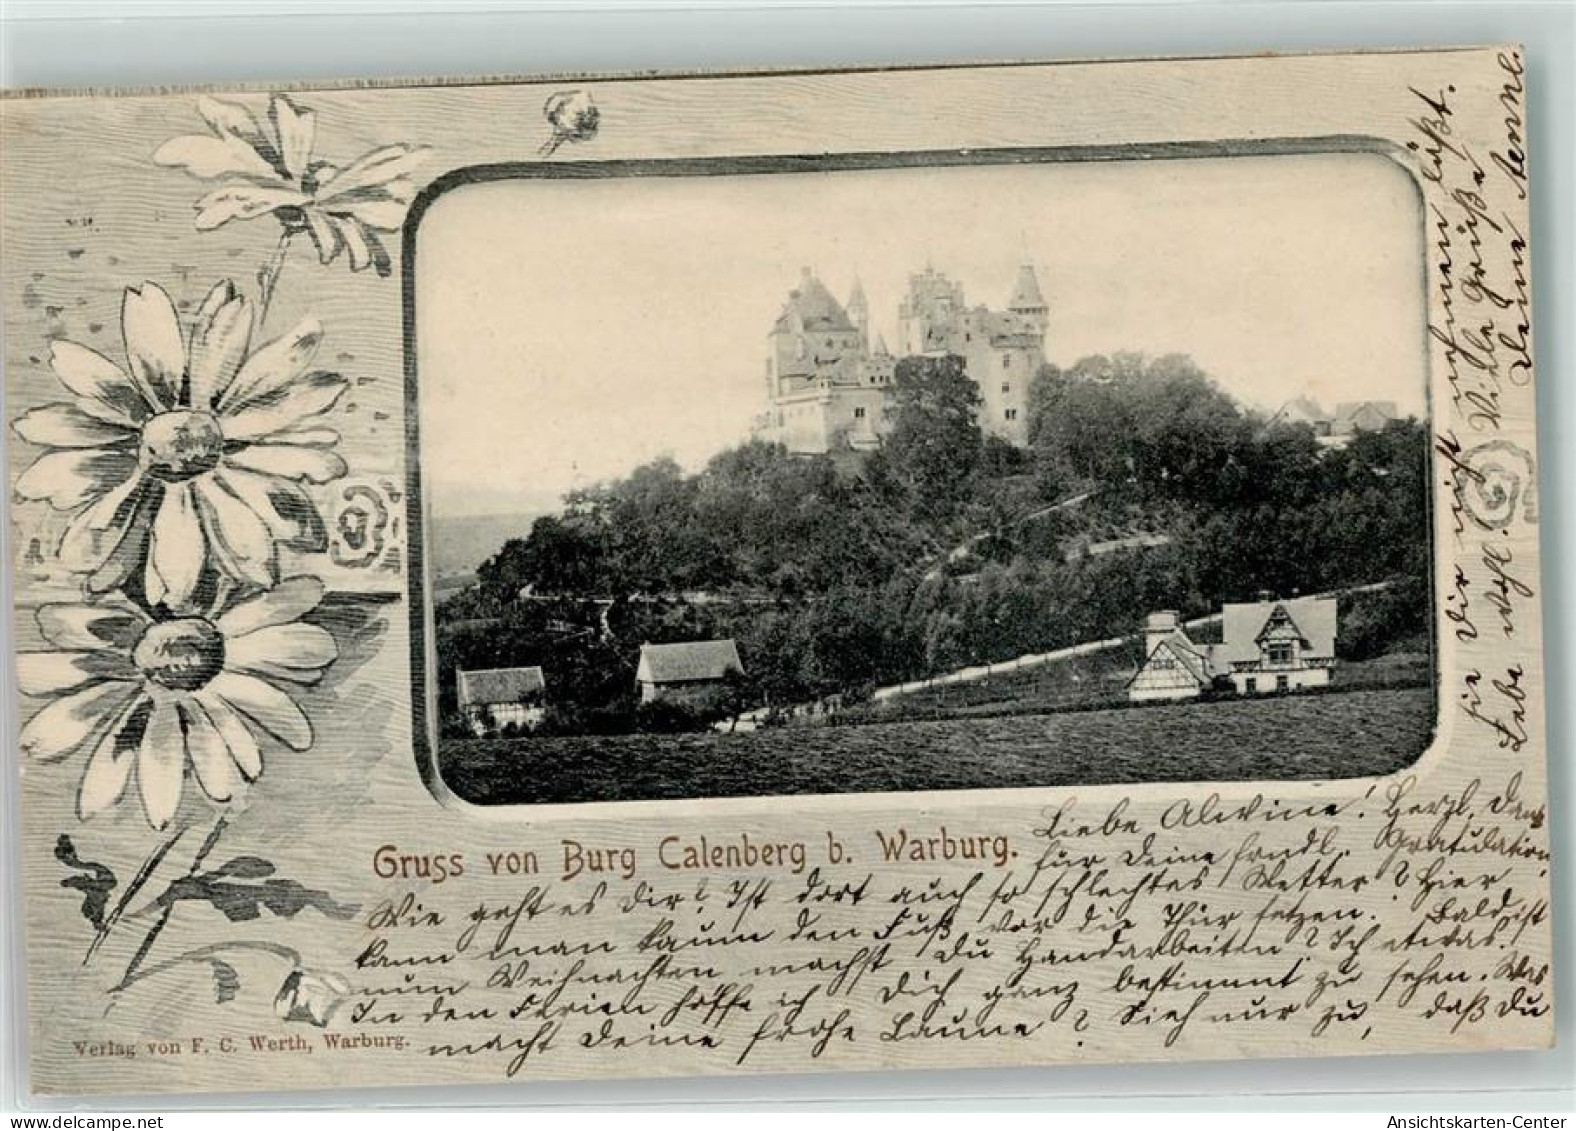 Gruss von Burg Calenberg b. Warburg.
Liebe Alwine! Herzl. Dank
für Deine frndl. Gratulation.
Wie geht es Dir? Ist dort auch so schlechtes Wetter? Hier
kann man kaum den Fuß vor die Thür setzen. Bald ist
nun Weihnachten machst Du Handarbeiten? Ich etwas.
In den Ferien hoffe ich Dich ganz bestimmt zu sehen. Was
macht Deine frohe Laune? Sieh nur zu, daß Du
sie Dir nicht nehmen läßt.
Lebe wohl. Viele Grüße
Deine Aenne.
Verlag von F. C. Werth, Warburg.
delcampe.net
Ansichtskarten-Center